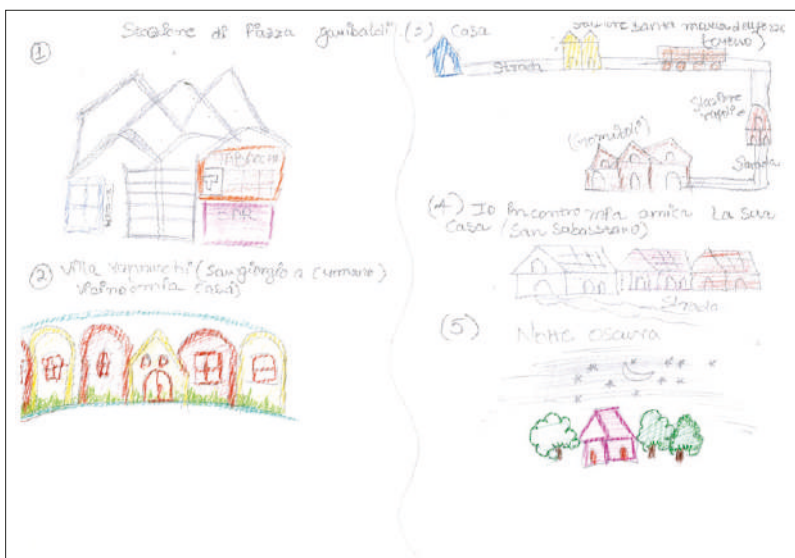 ① Stazione di Piazza garibaldi
TABACCHI
T
BAR
② Villa Vannucchi (san giorgio a cremano)
vicino mia casa)
(3) Casa
stazione santa maria del pozzo
Strada
Stazione
napoli
Strada
(4) Io incontro mia amica La sua
casa (San Sabasstano)
Strada
(5) Notte oscura